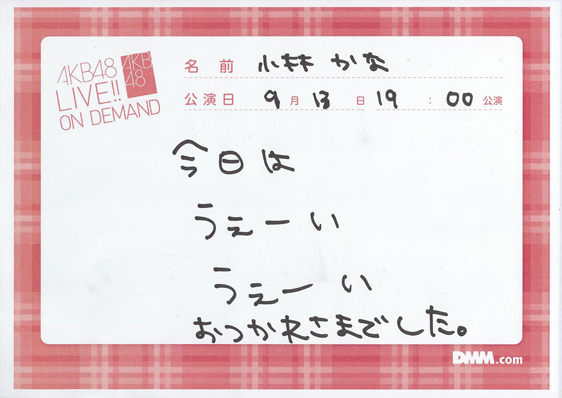 AKB48
LIVE!!
ON DEMAND
AKB
48
名前 小林 かな
公演日 9月13日19:00公演
今日は
うぇーい
うぇーい
おつかれさまでした。
DMM.com